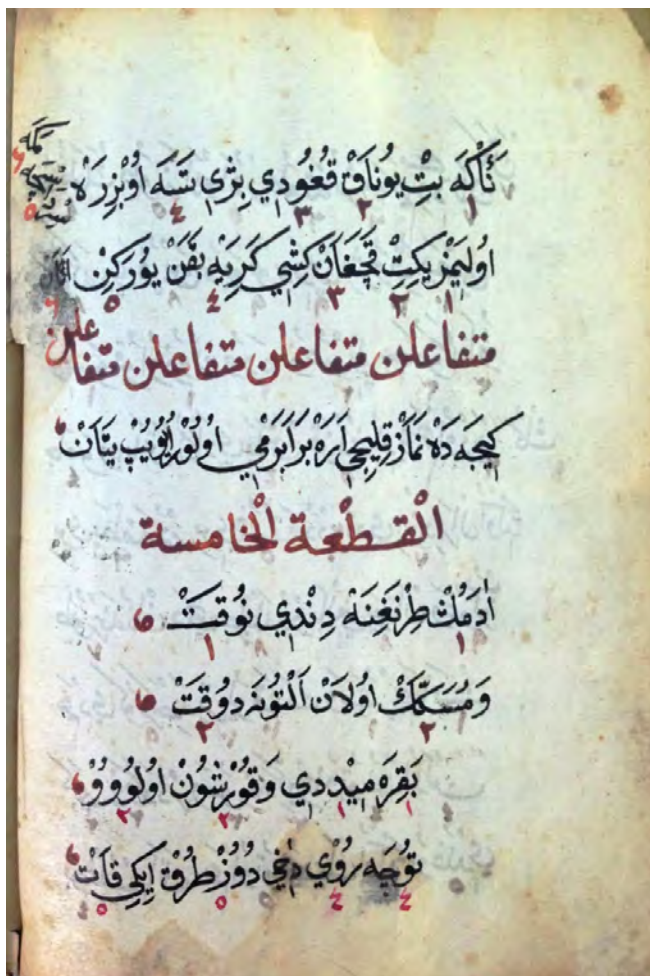 نَاكَه بِتْ يُونَاقْ قُغُودِي بِرْي سَسَه اُوبْزِرَهْ
اولِيَمْز يكِتْ قَچغَانْ كِشِي كَرِيَه بَقَنْ يُورَكِنْ
متفاعلن متفاعلن متفاعلن متفاعلن
كِيجَه دَه نَمَازْ قِلِيجِي اَرَه بَرَابَرمِي اولور اُويُوپْ يَتَانْ
الْقطعة الْخامسة
اٰدَمُكْ طِرْنَغِنَه دِنْدِي نُوقَتْ
وَمُسَكَّكْ اُولاَنْ اَلْتُونَه دوُقَتْ
بَقِرَه مِيْد دِي وَقُورْشُونْ اولُووُوْ
تُوجَه رُوْي دَخِي دُوزْ طرُقْ اِيكِي قَاتْ